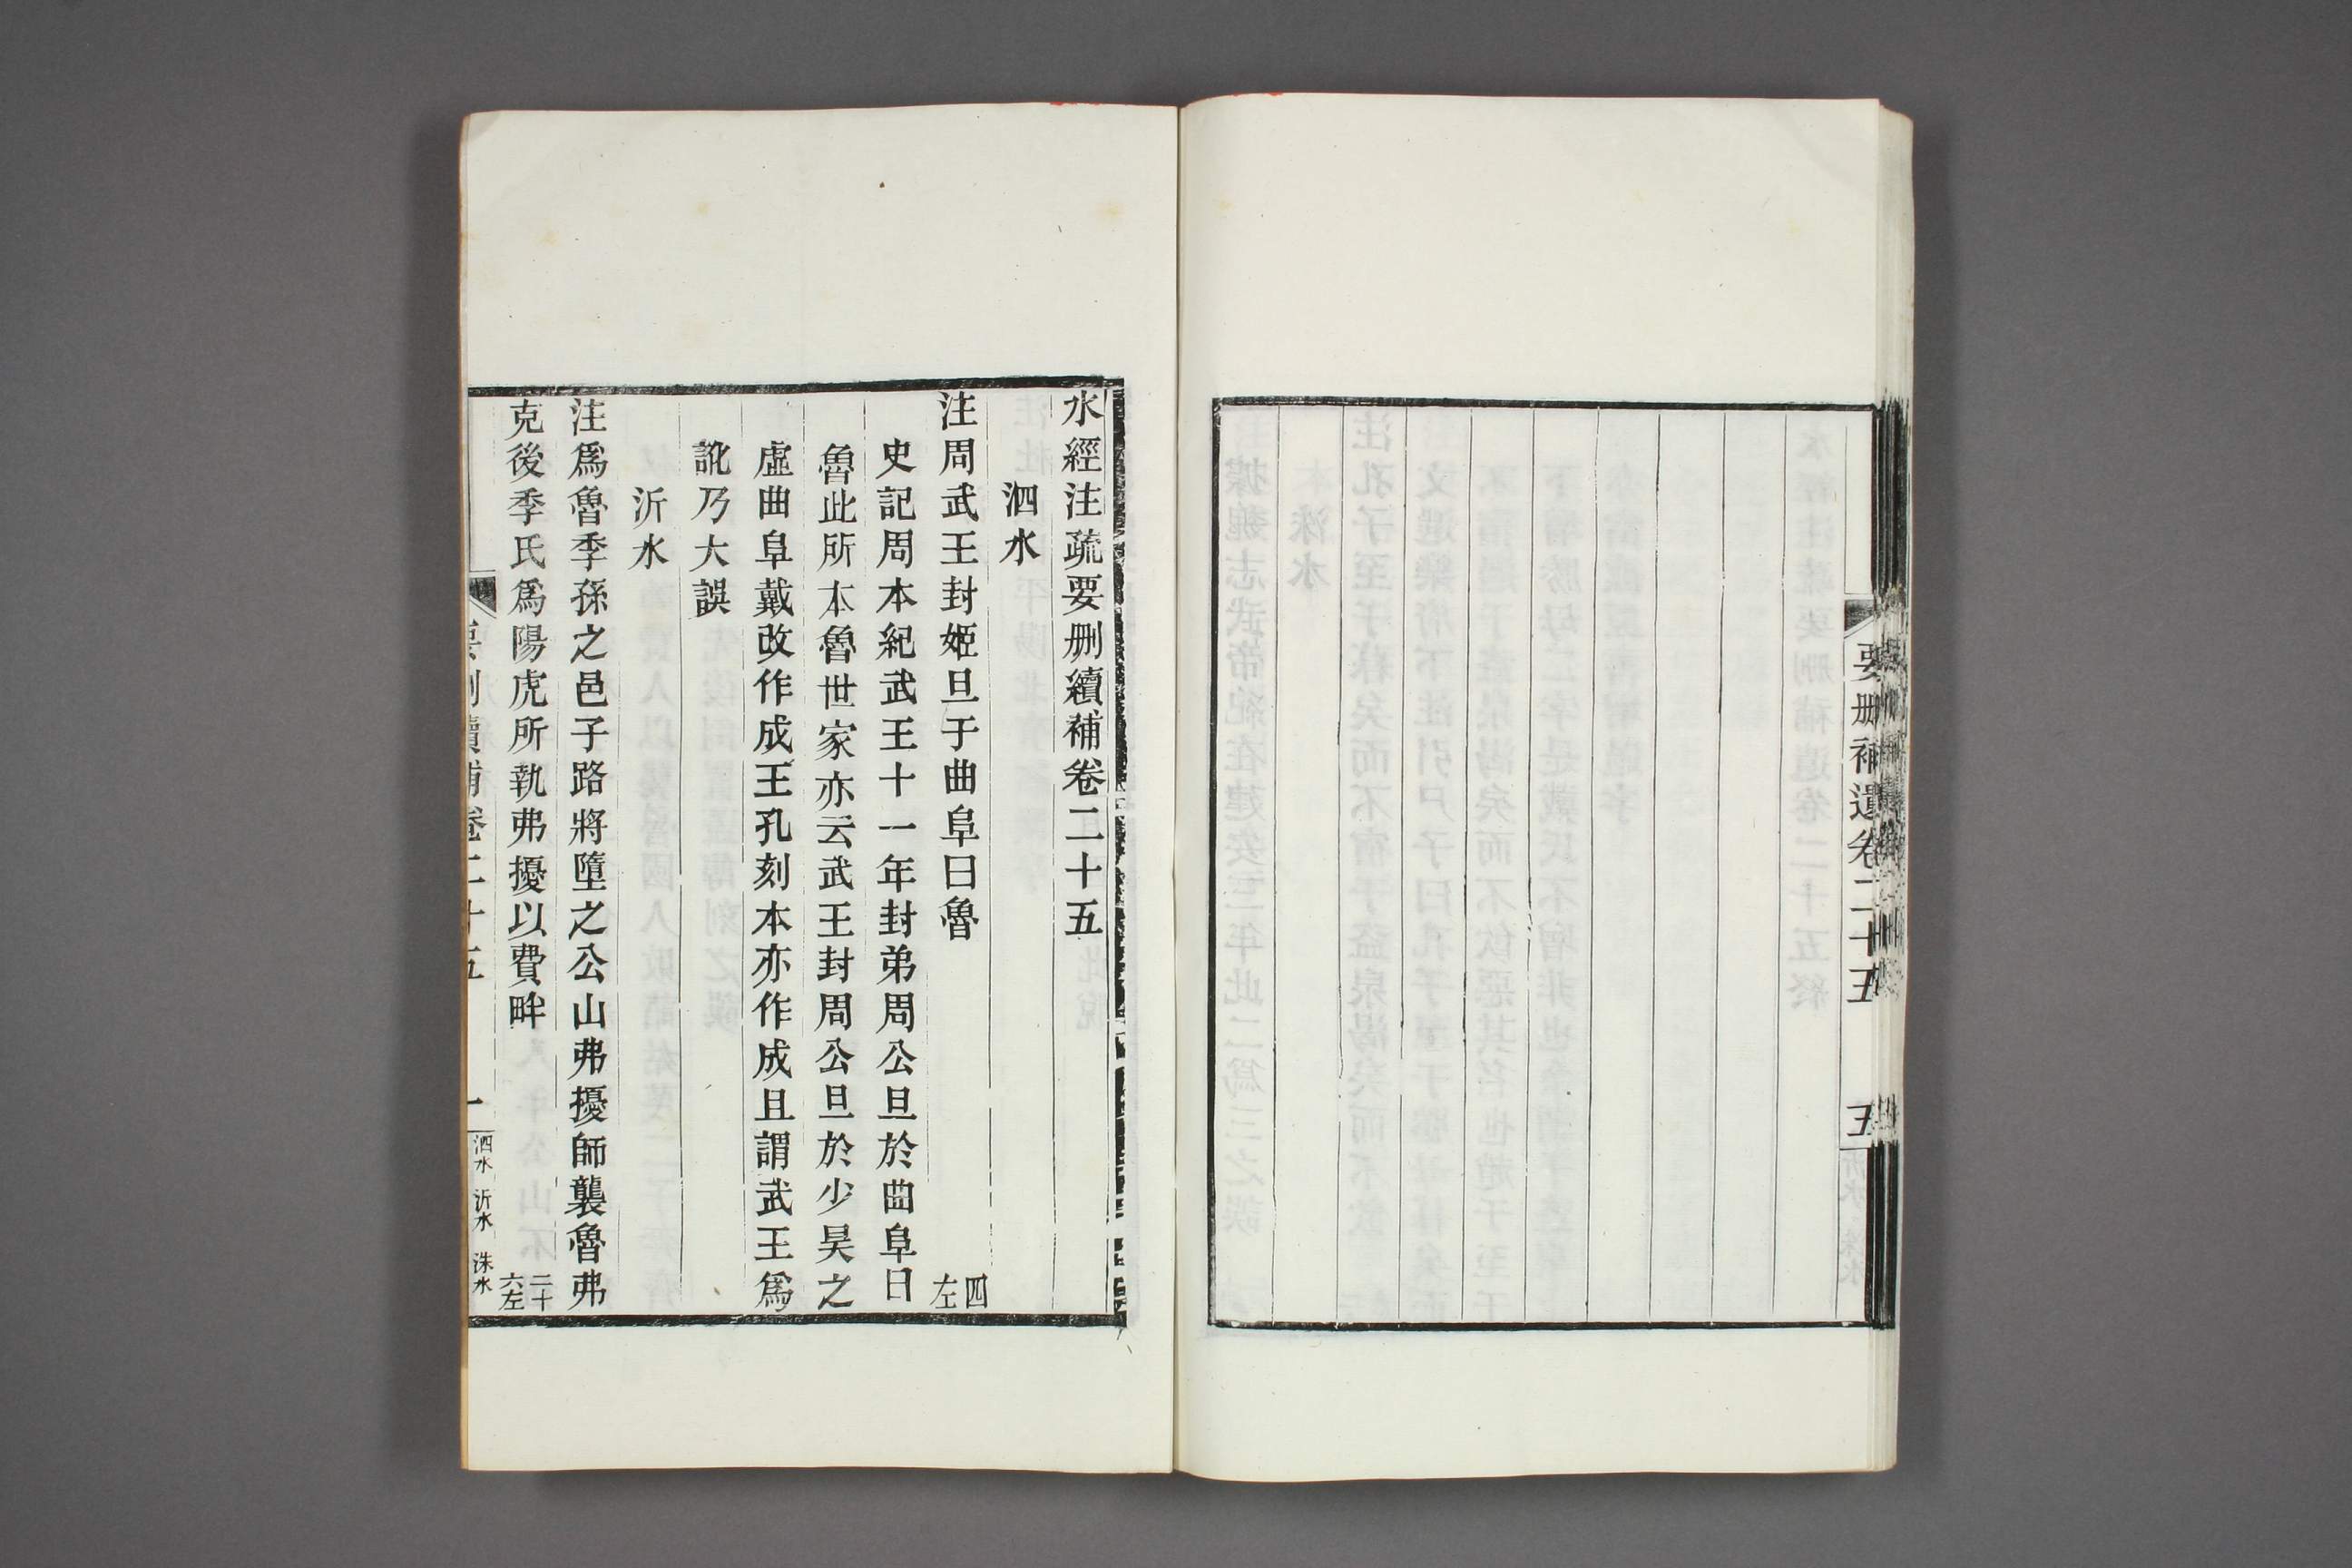 要刪補遺卷二十五
五
水經注疏要刪續補卷二十五
泗水
注周武王封姬旦于曲阜曰魯 四左
史記周本紀武王十一年封弟周公旦於曲阜曰
魯此所本魯世家亦云武王封周公旦於少昊之
虛曲阜戴改作成王孔刻本亦作成且謂武王爲
訛乃大誤
沂水
注爲魯季孫之邑子路將墮之公山弗擾師襲魯弗
克後季氏爲陽虎所執弗擾以費畔 二十六左
要刪續補卷二十五
一
泗水 沂水 洙水